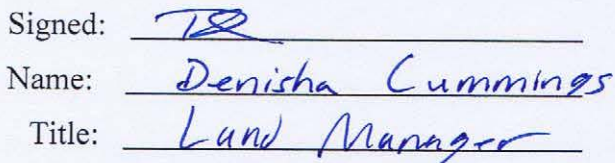 Signed:
Name: Denisha Cummings
Title: Land Manager